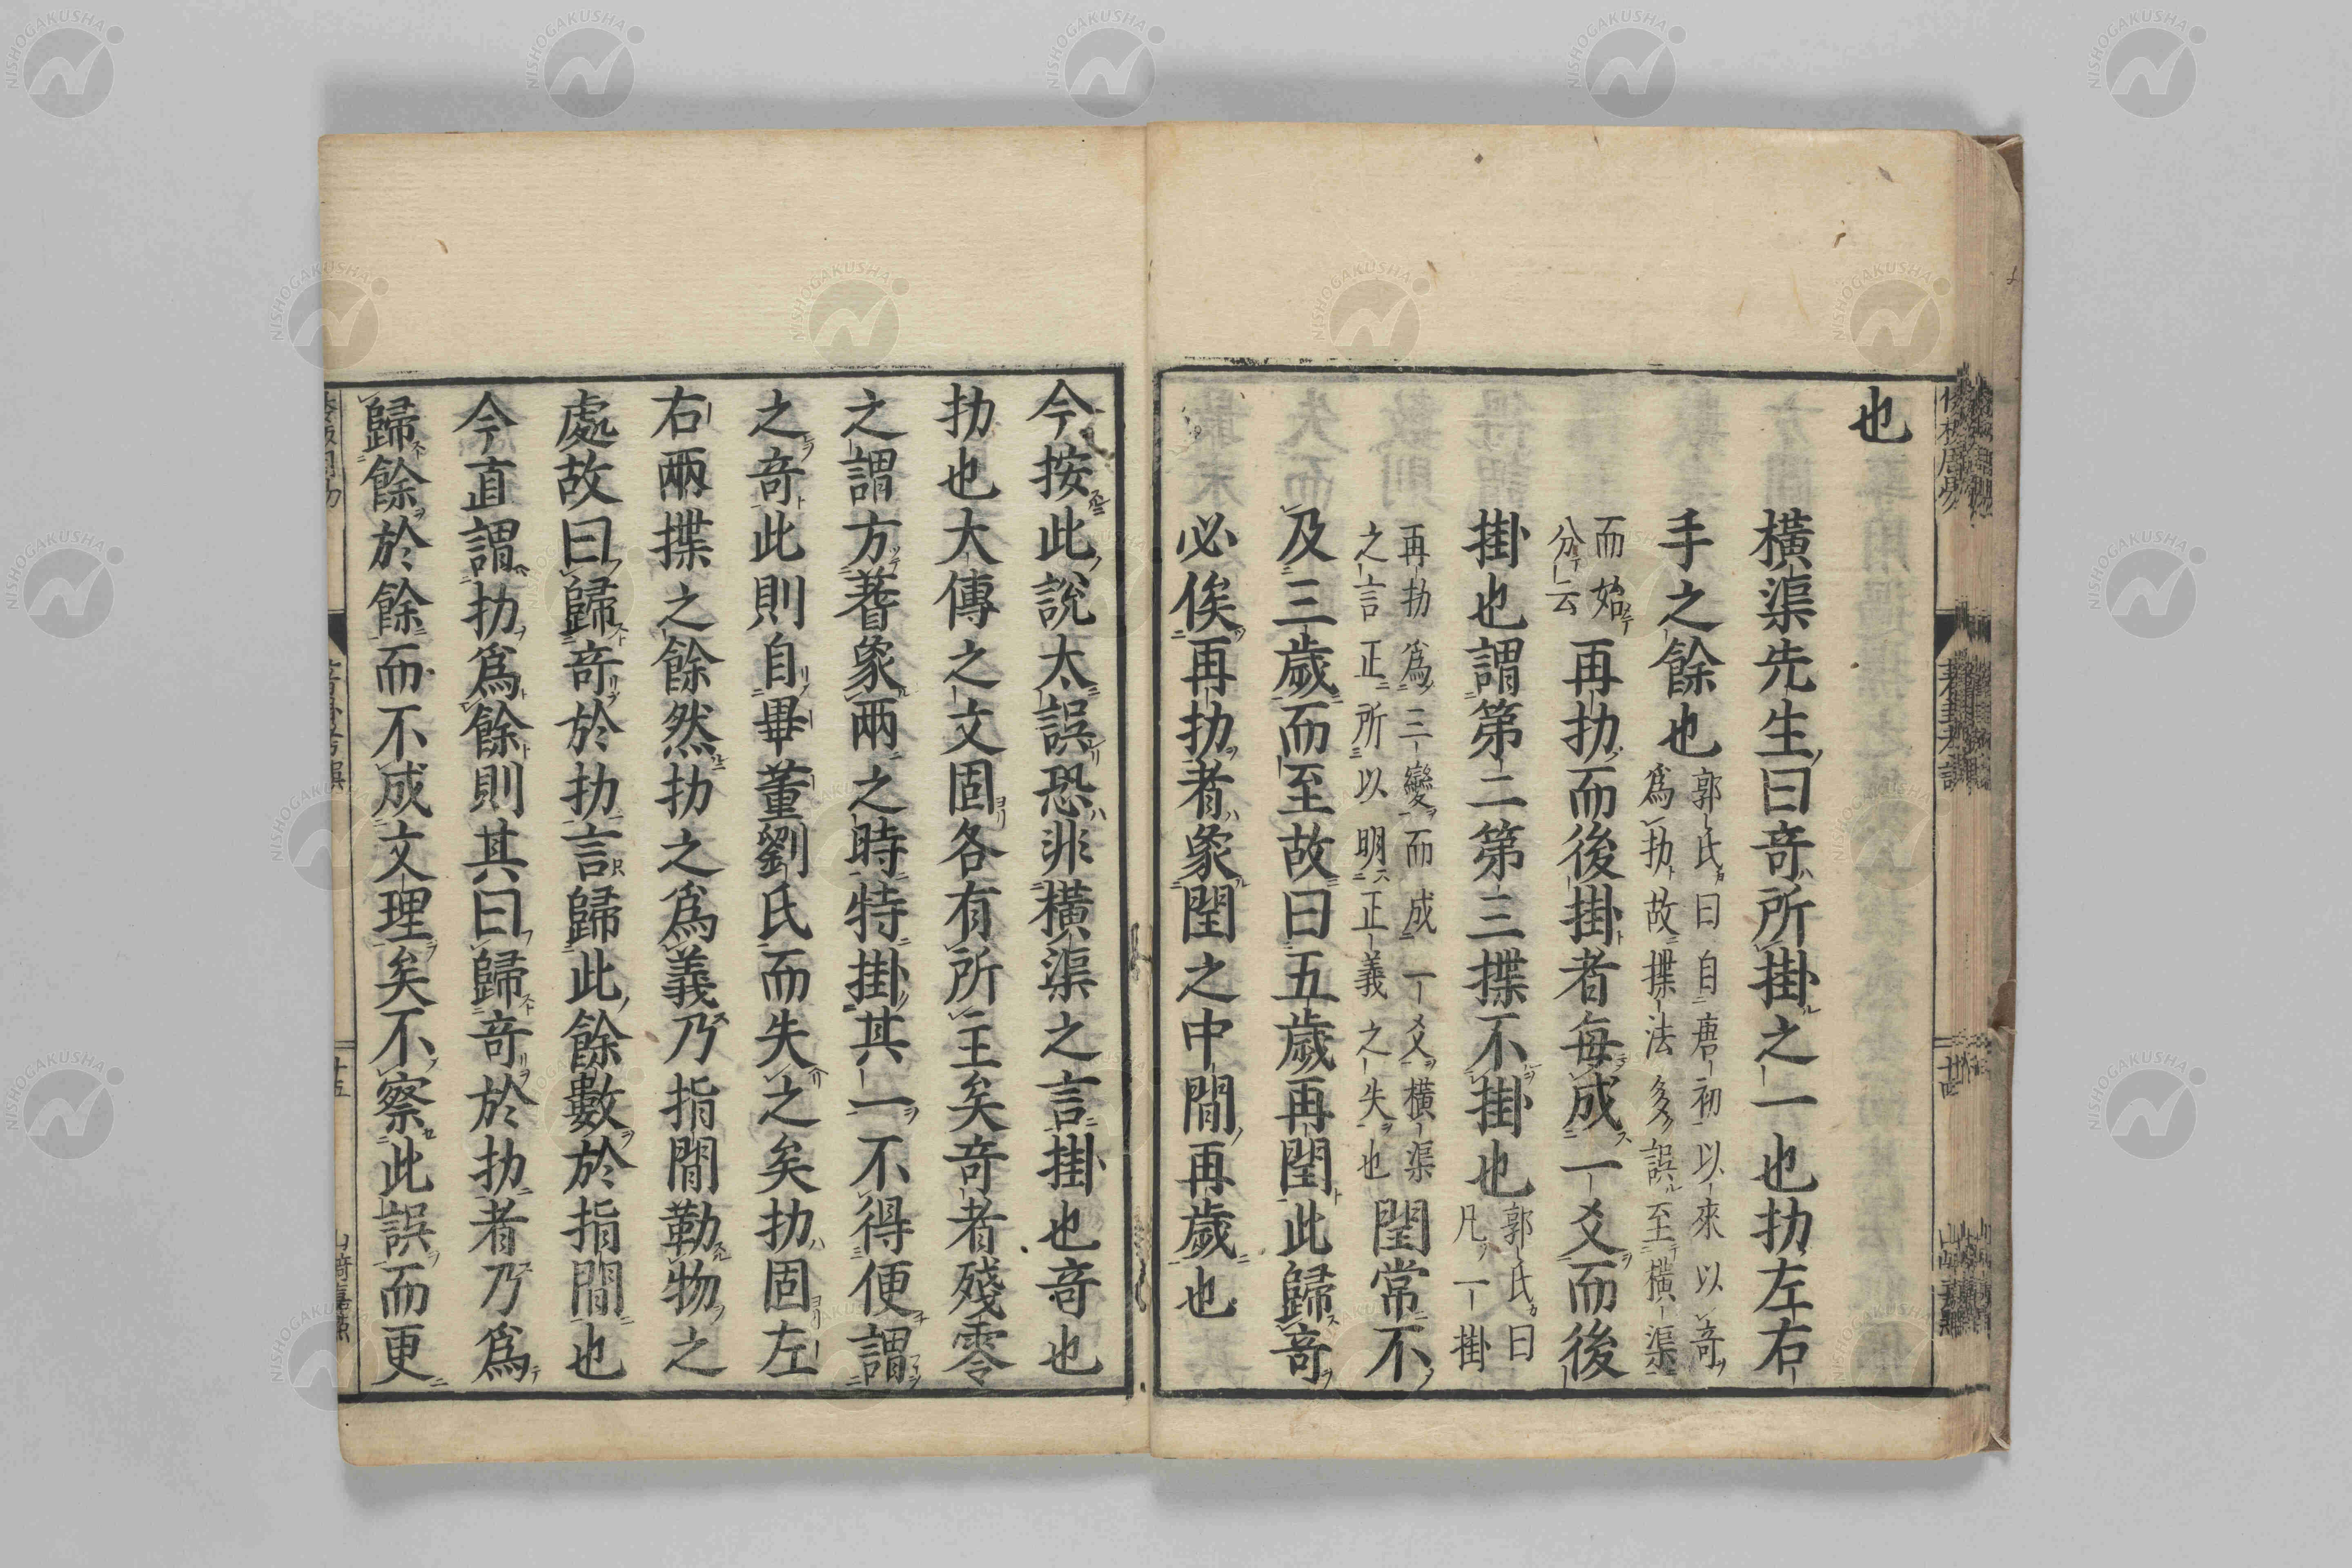 也
横渠先生曰奇所掛之一也扐左右
手之餘也郭氏曰自唐初以來以奇
爲扐故揲法多誤至横渠
而始
分云再扐而後掛者毎成一爻而後
掛也謂第二第三揲不掛也郭氏曰
凡一掛
再扐爲三變而成一爻横渠
之言正所以明正義之失也閏常不
及三歲而至故曰五歲再閏此歸奇
必俟再扐者象閏之中間再歲也
今按此說太誤恐非横渠之言掛也奇也
扐也大傳之文固各有所主矣奇者殘零
之謂方蓍象兩之時特掛其一不得便謂
之奇此則自畢董劉氏而失之矣扐固左
右兩揲之餘然扐之爲義乃指間勒物之
處故曰歸奇於扐言歸此餘數於指間也
今直謂扐爲餘則其曰歸奇於扐者乃爲
歸餘於餘而不成文理矣不察此誤而更
NISHOGAKUSHA